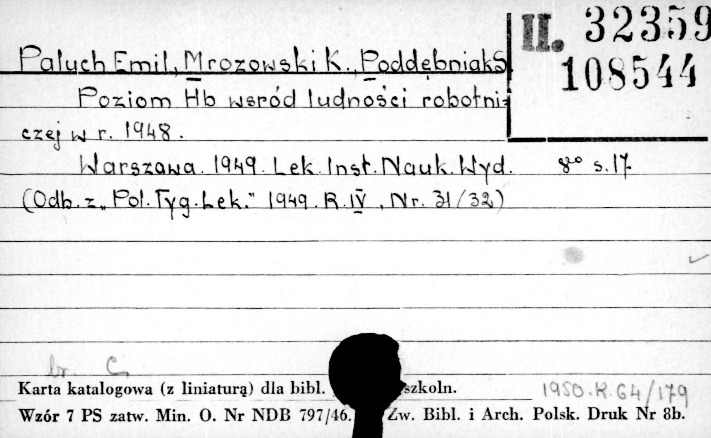 II. 32359
108544
Paluch Emil, Mrozowski K., Poddębniak S.
Poziom Hb wsród ludności robotni-
czej w r. 1948.
Warszawa. 1949. Lek. Inst. Nauk. Wyd. 8vo s. 17.
(Odb. z „Pol. Tyg. Lek." 1949. R. IV, Nr. 31/32)
br. C.
Karta katalogowa (z liniaturą) dla bibl. szkoln. 1950. K. 64/179
Wzór 7 PS zatw. Min. O. Nr NDB 797/46. Zw. Bibl. i Arch. Polsk. Druk Nr 8b.